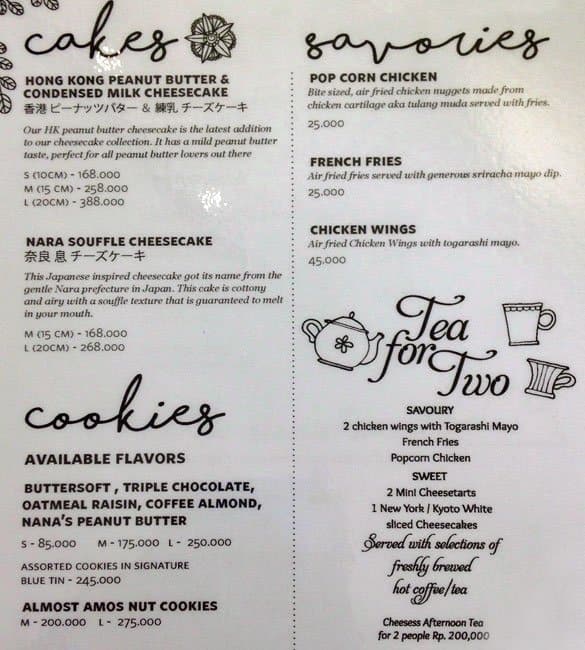 cakes
HONG KONG PEANUT BUTTER &
CONDENSED MILK CHEESECAKE
香港 ピーナッツバター & 練乳 チーズケーキ
Our HK peanut butter cheesecake is the latest addition
to our cheesecake collection. It has a mild peanut butter
taste, perfect for all peanut butter lovers out there
S (10CM) - 168.000
M (15 CM) - 258.000
L (20CM) - 388.000
NARA SOUFFLE CHEESECAKE
奈良 息 チーズケーキ
This Japanese inspired cheesecake got its name from the
gentle Nara prefecture in Japan. This cake is cottony
and airy with a souffle texture that is guaranteed to melt
in your mouth.
M (15 CM) - 168.000
L (20CM) - 268.000
cookies
AVAILABLE FLAVORS
BUTTERSOFT , TRIPLE CHOCOLATE,
OATMEAL RAISIN, COFFEE ALMOND,
NANA'S PEANUT BUTTER
S - 85.000 M - 175.000 L - 250.000
ASSORTED COOKIES IN SIGNATURE
BLUE TIN - 245.000
ALMOST AMOS NUT COOKIES
M - 200.000 L - 275.000
savories
POP CORN CHICKEN
Bite sized, air fried chicken nuggets made from
chicken cartilage aka tulang muda served with fries.
25.000
FRENCH FRIES
Air fried fries served with generous sriracha mayo dip.
25.000
CHICKEN WINGS
Air fried Chicken Wings with togarashi mayo.
45.000
Tea
for
Two
SAVOURY
2 chicken wings with Togarashi Mayo
French Fries
Popcorn Chicken
SWEET
2 Mini Cheesetarts
1 New York / Kyoto White
sliced Cheesecakes
Served with selections of
freshly brewed
hot coffee/tea
Cheesess Afternoon Tea
for 2 people Rp. 200,000